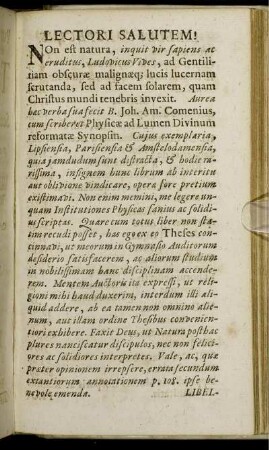 LECTORI SALUTEM!
NOn est natura, inquit vir sapiens ac
eruditus, Ludovicus Vives, ad Gentili-
tiam obscuræ malignæq; lucis lucernam
scrutanda, sed ad facem solarem, quam
Christus mundi tenebris invexit. Aurea
hæc verba sua fecit B. Joh. Am. Comenius,
cum scriberet Physicæ ad Lumen Divinum
reformatæ Synopsin. Cujus exemplaria,
Lipsiensia, Parisiensia & Amstelodamensia,
quia jamdudum sunt distracta, & hodie ra-
rissima, insignem hunc librum ab interitu
aut oblivione vindicare, opera fore pretium
existimavi. Non enim memini, me legere un-
quam Institutiones Physicas sanius ac solidi-
us scriptas. Quare cum totus liber non sta-
tim recudi posset, has ego ex eo Theses con-
cinnavi, ut meorum in Gymnasio Auditorum
desiderio satisfacerem, ac aliorum studium
in nobilissimam hanc disciplinam accende-
rem. Mentem Auctoris ita expressi, ut re-
ligioni mihi haud duxerim, interdum illi ali-
quid addere, ab ea tamen non omnino alie-
num, aut illam ordine Thesibus convenien-
tiori exhibere. Faxit Deus, ut Natura posthac
plures nanciscatur discipulos, nec non felici-
ores ac solidiores interpretes. Vale, ac, quæ
præter opinionem irrepsere, errata secundum
extantiorum annotationem p. 108. ipse be-
nevole emenda. LIBEL-